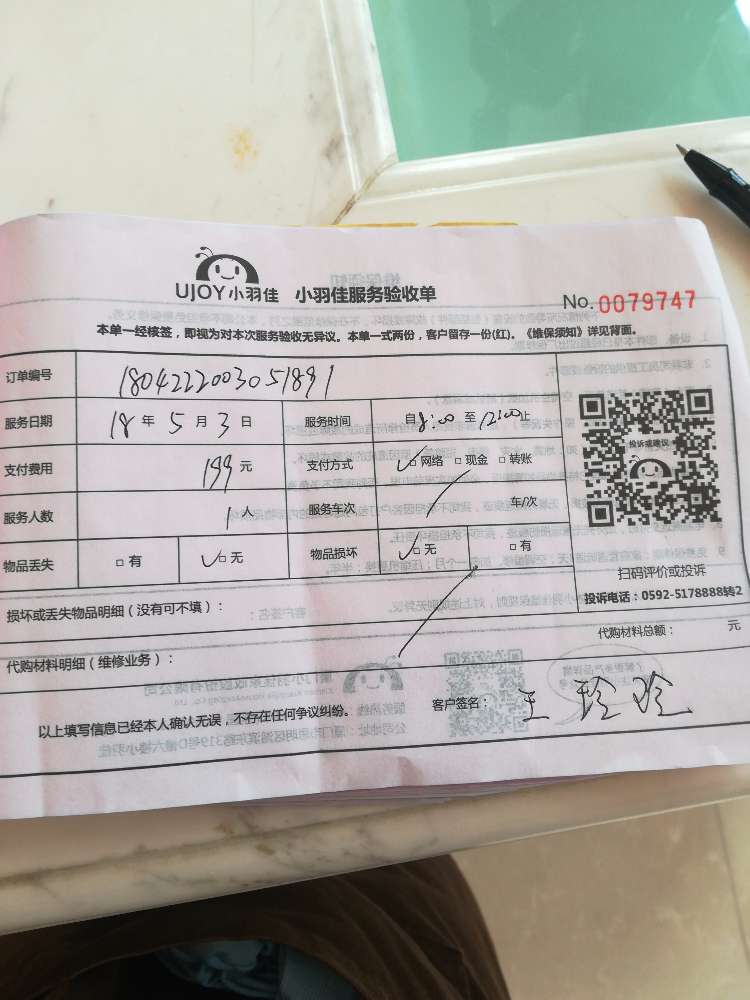 UJOY小羽佳 小羽佳服务验收单
No. 0079747
本单一经核签，即视为对本次服务验收无异议。本单一式两份，客户留存一份(红)。《维保须知》详见背面。
订单编号 1804222003051891
服务日期 18 年 5 月 3 日 服务时间 自 8:00 至 12:00 止
支付费用 199 元 支付方式 ✓□ 网络 □ 现金 □ 转账
服务人数 1 人 服务车次 车/次
物品丢失 □ 有 ✓□ 无 物品损坏 ✓□ 无 □ 有
投诉或建议
扫码评价或投诉
投诉电话：0592-5178888转2
损坏或丢失物品明细（没有可不填）：
代购材料明细（维修业务）： 代购材料总额： 元
以上填写信息已经本人确认无误，不存在任何争议纠纷。 客户签名： 王玲玲